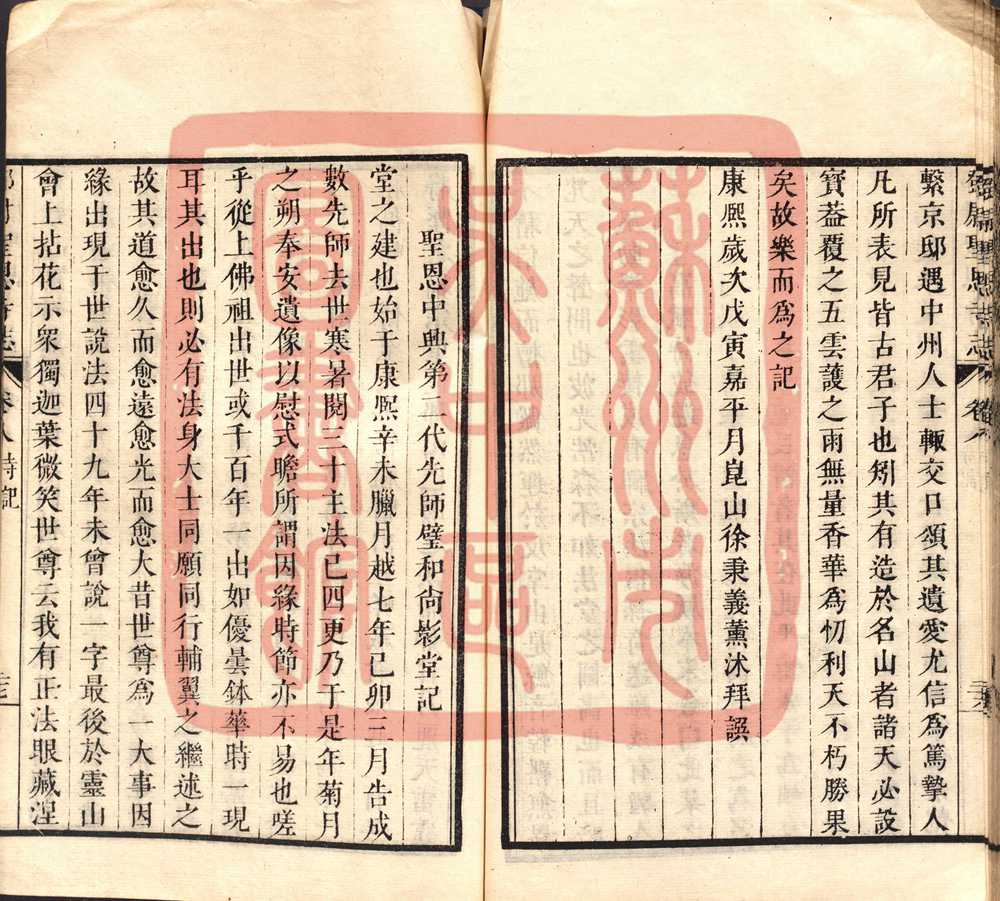 鄧尉聖恩寺志 卷八
繫京邸遇中州人士輙交口頌其遺愛尤信為篤摯人
凡所表見皆古君子也矧其有造於名山者諸天必設
寶葢覆之五雲護之雨無量香華為忉利天不朽勝果
矣故樂而為之記
康熙歲次戊寅嘉平月崑山徐秉義薰沐拜譔
聖恩中興第二代先師璧和尚影堂記
堂之建也始于康熙辛未臘月越七年己卯三月告成
數先師去世寒暑閱三十主法已四更乃于是年菊月
之朔奉安遺像以慰式瞻所謂因緣時節亦不易也嗟
乎從上佛祖出世或千百年一出如優曇鉢華時一現
耳其出也則必有法身大士同願同行輔翼之繼述之
故其道愈久而愈遠愈光而愈大昔世尊為一大事因
緣出現于世說法四十九年未曾說一字最後於靈山
會上拈花示衆獨迦葉微笑世尊云我有正法眼藏涅
鄧尉聖恩寺志 卷八 詩記
蘇州市
吳中區
圖書館